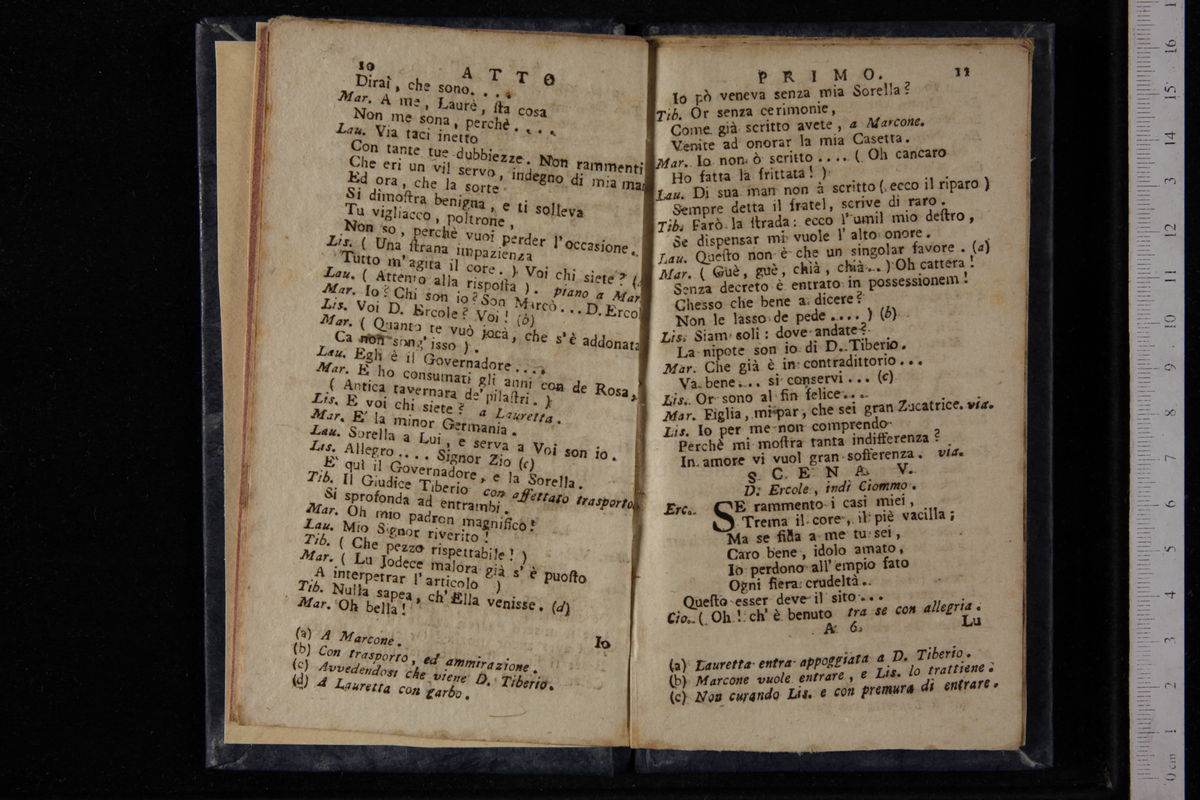 10
ATTO
Diraì, che sono. . . .
Mar. A me, Laurè, ſta cosa
Non me sona, perchè. . . .
Lau. Via taci inetto
Con tante tue dubbiezze. Non rammenti
Che eri un vil servo, indegno di mia
Ed ora, che la sorte
Si dimoſtra benigna, e ti solleva
Tu vigliacco, poltrone,
Non so, perchè vuoi perder l'occasione.
Lis. ( Una ſtrana impazienza
Tutto m'agita il core. ) Voi chi siete?
Lau. ( Attento alla rispoſta ). piano a Mar
Mar. Io? Chi son io? Son Marcò... D. Erco
Lis. Voi D. Ercole? Voi! (b)
Mar. ( Quanto te vuò jocà, che s'è addonata
Ca non song' isso ).
Lau. Egli è il Governadore....
Mar. E ho consumati gli anni con de Rosa,
( Antica tavernara de' pilaſtri. )
Lis. E voi chi siete? a Lauretta.
Mar. E' la minor Germania.
Lau. Sorella a Lui, e serva a Voi son io.
Lis. Allegro.... Signor Zio (c)
E' quì il Governadore, e la Sorella.
Tib. Il Giudice Tiberio con affettato trasporto
Si sprofonda ad entrambi.
Mar. Oh mio padron magnifico!
Lau. Mio Signor riverito!
Tib. ( Che pezzo rispettabile! )
Mar. ( Lu Jodece malora già s'è puoſto
A interpetrar l'articolo )
Tib. Nulla sapea, ch'Ella venisse. (d)
Mar. Oh bella!
Io
(a) A Marcone.
(b) Con trasporto, ed ammirazione.
(c) Avvedendosi che viene D. Tiberio.
(d) A Lauretta con garbo.
PRIMO.
11
Io pò veneva senza mia Sorella?
Tib. Or senza cerimonie,
Come già scritto avete, a Marcone.
Venite ad onorar la mia Casetta.
Mar. Io non ò scritto.... ( Oh cancaro
Ho fatta la frittata! )
Lau. Di sua man non à scritto ( ecco il riparo )
Sempre detta il fratel, scrive di raro.
Tib. Farò la ſtrada: ecco l'umil mio deſtro,
Se dispensar mi vuole l'alto onore.
Lau. Queſto non è che un singolar favore. (a)
Mar. ( Guè, guè, chià, chià.. ) Oh cattera!
Senza decreto è entrato in possessionem!
Chesso che bene a dicere?
Non le lasso de pede.... ) (b)
Lis. Siam soli: dove andate?
La nipote son io di D. Tiberio.
Mar. Che già è in contradittorio...
Va bene... si conservi... (c)
Lis. Or sono al fin felice...
Mar. Figlia, mi par, che sei gran Zucatrice. via.
Lis. Io per me non comprendo
Perchè mi moſtra tanta indifferenza?
In amore vi vuol gran sofferenza. via.
SCENA V.
D. Ercole, indi Ciommo.
Erc. SE rammento i casi miei,
Trema il core, il piè vacilla;
Ma se fida a me tu sei,
Caro bene, idolo amato,
Io perdono all'empio fato
Ogni fiera crudeltà.
Queſto esser deve il sito...
Cio. ( Oh! ch'è benuto tra se con allegria.
A 6
Lu
(a) Lauretta entra appoggiata a D. Tiberio.
(b) Marcone vuole entrare, e Lis. lo trattiene.
(c) Non curando Lis. e con premura di entrare.
0 cm 1 2 3 4 5 6 7 8 9 10 11 12 13 14 15 16